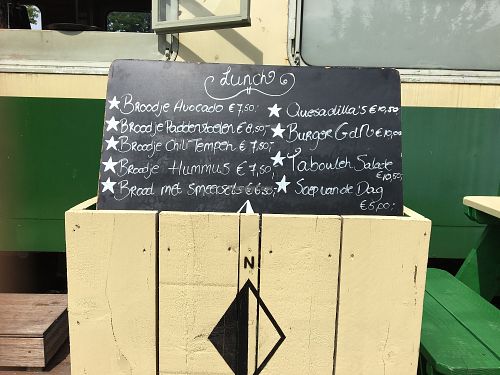 Lunch
Broodje Avocado €7,50,-
Broodje Paddenstoelen €8,50,-
Broodje Chili Tempeh €7,50,-
Broodje Hummus €7,50,-
Brood met smeersels €6,50,-
Quesadilla's €10,50
Burger GdN €10,00
Tabouleh Salade
€10,50,-
Soep van de Dag
€5,00,-
N